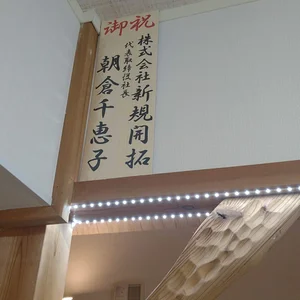 御祝
株式会社新規開拓
代表取締役社長
朝倉千恵子